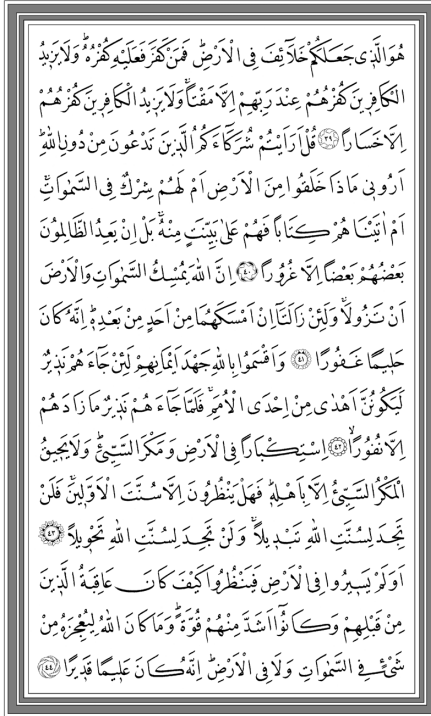 هُوَ الَّذٖى جَعَلَكُمْ خَلَٓائِفَ فِى الْاَرْضِؕ فَمَنْ كَفَرَ فَعَلَيْهِ كُفْرُهُؕ وَلَا يَزٖيدُ
الْكَافِرٖينَ كُفْرُهُمْ عِنْدَ رَبِّهِمْ اِلَّا مَقْتاًۚ وَلَا يَزٖيدُ الْكَافِرٖينَ كُفْرُهُمْ
اِلَّا خَسَاراً ﴿٣٩﴾ قُلْ اَرَاَيْتُمْ شُرَكَٓاءَكُمُ الَّذٖينَ تَدْعُونَ مِنْ دُونِ اللّٰهِؕ
اَرُونٖى مَاذَا خَلَقُوا مِنَ الْاَرْضِ اَمْ لَهُمْ شِرْكٌ فِى السَّمٰوَاتِۚ
اَمْ اٰتَيْنَاهُمْ كِتَاباً فَهُمْ عَلٰى بَيِّنَتٍ مِنْهُۚ بَلْ اِنْ يَعِدُ الظَّالِمُونَ
بَعْضُهُمْ بَعْضاً اِلَّا غُرُوراً ﴿٤٠﴾ اِنَّ اللّٰهَ يُمْسِكُ السَّمٰوَاتِ وَالْاَرْضَ
اَنْ تَزُولَاۚ وَلَئِنْ زَالَتَٓا اِنْ اَمْسَكَهُمَا مِنْ اَحَدٍ مِنْ بَعْدِهٖؕ اِنَّهُ كَانَ
حَلٖيماً غَفُوراً ﴿٤١﴾ وَاَقْسَمُوا بِاللّٰهِ جَهْدَ اَيْمَانِهِمْ لَئِنْ جَٓاءَهُمْ نَذٖيرٌ
لَيَكُونُنَّ اَهْدٰى مِنْ اِحْدَى الْاُمَمِۚ فَلَمَّا جَٓاءَهُمْ نَذٖيرٌ مَا زَادَهُمْ
اِلَّا نُفُوراًۙ ﴿٤٢﴾ اِسْتِكْبَاراً فِى الْاَرْضِ وَمَكْرَ السَّيِّئِؕ وَلَا يَحٖيقُ
الْمَكْرُ السَّيِّئُ اِلَّا بِاَهْلِهٖؕ فَهَلْ يَنْظُرُونَ اِلَّا سُنَّتَ الْاَوَّلٖينَۚ فَلَنْ
تَجِدَ لِسُنَّتِ اللّٰهِ تَبْدٖيلاًۚ وَلَنْ تَجِدَ لِسُنَّتِ اللّٰهِ تَحْوٖيلاً ﴿٤٣﴾
اَوَلَمْ يَسٖيرُوا فِى الْاَرْضِ فَيَنْظُرُوا كَيْفَ كَانَ عَاقِبَةُ الَّذٖينَ
مِنْ قَبْلِهِمْ وَكَانُٓوا اَشَدَّ مِنْهُمْ قُوَّةًؕ وَمَا كَانَ اللّٰهُ لِيُعْجِزَهُ مِنْ
شَیْءٍ فِى السَّمٰوَاتِ وَلَا فِى الْاَرْضِؕ اِنَّهُ كَانَ عَلٖيماً قَدٖيراً ﴿٤٤﴾